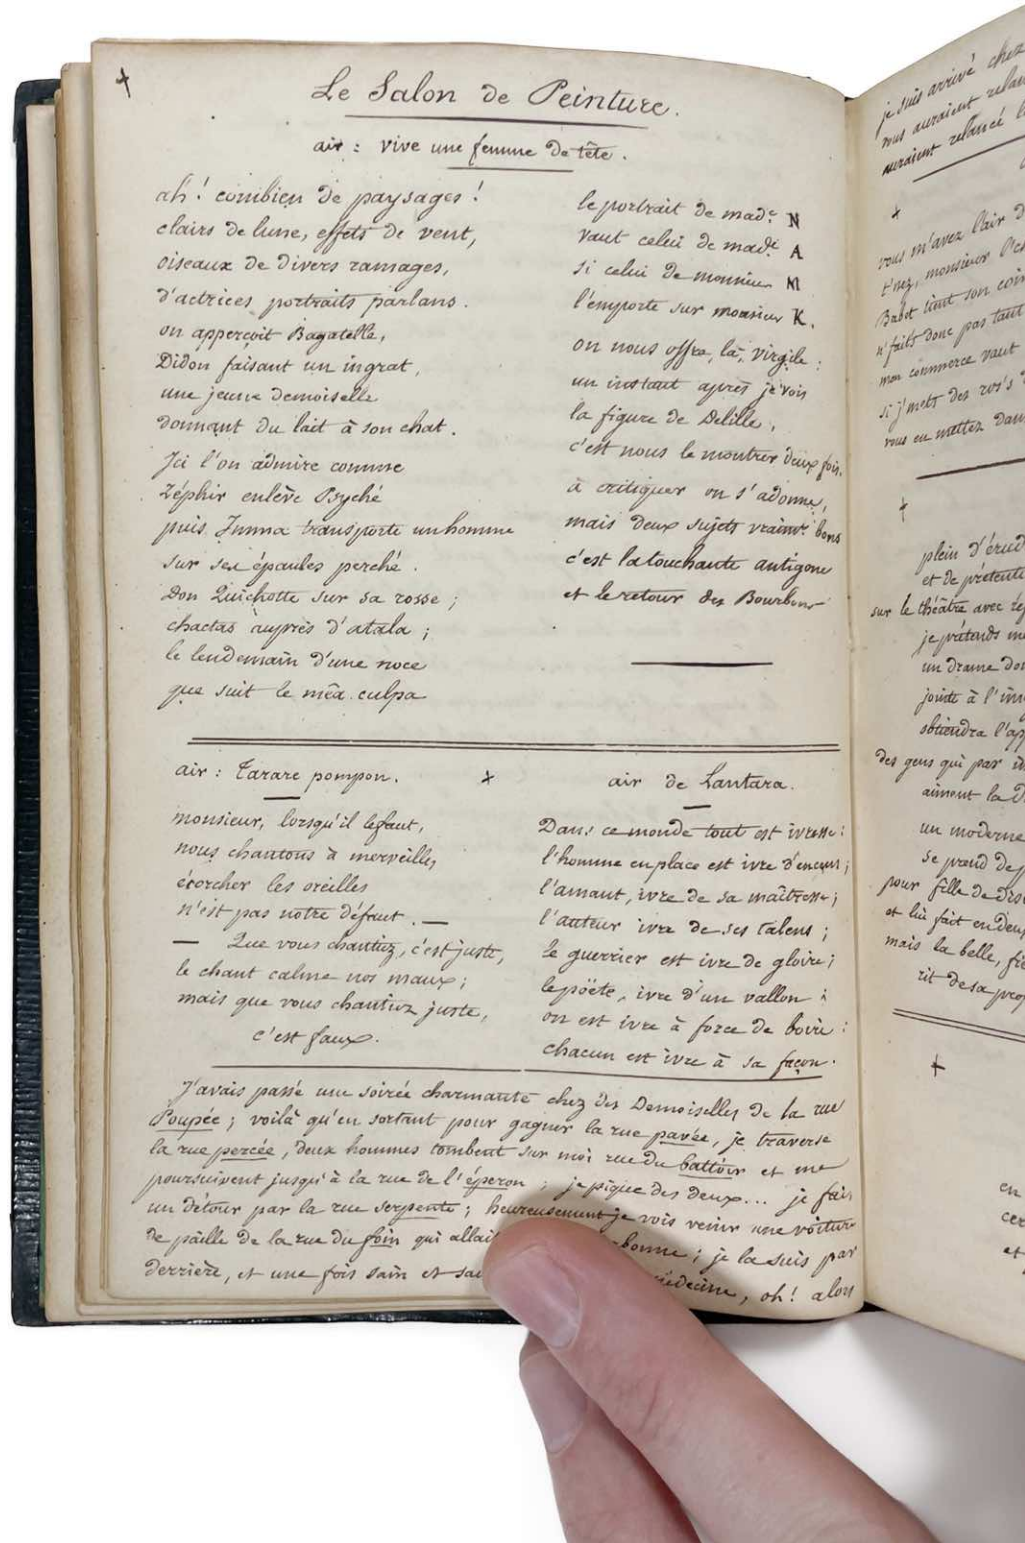 Le Salon de Peinture.
air : vive une femme de tête.
ah ! combien de paysages !
clairs de lune, effets de vent,
oiseaux de divers ramages,
d'actrices portraits parlans.
on apperçoit Bagatelle,
Didon faisant un ingrat,
une jeune demoiselle
donnant du lait à son chat.
Ici l'on admire comme
Zéphir enlève Psyché
puis Imma transporte un homme
sur ses épaules perché.
Don Quichotte sur sa rosse ;
chactas auprès d'atala ;
le lendemain d'une noce
que suit le méa culpa
le portrait de made. N
vaut celui de made. A
si celui de monsieur M
l'emporte sur monsieur K.
on nous offre, là, virgile :
un instant après je vois
la figure de Delille,
c'est nous le montrer deux fois.
à critiquer on s'adonne,
mais deux sujets vraimt. bons
c'est la touchante antigone
et le retour des Bourbons
air : Tarare pompon.
monsieur, lorsqu'il le faut,
nous chantons à merveille,
écorcher les oreilles
n'est pas notre défaut. —
— Que vous chantiez, c'est juste,
le chant calme nos maux ;
mais que vous chantiez juste,
c'est faux.
air de Lantara.
Dans ce monde tout est ivresse :
l'homme en place est ivre d'encens ;
l'amant, ivre de sa maîtresse ;
l'auteur ivre de ses talens ;
le guerrier est ivre de gloire ;
le poëte, ivre d'un vallon :
on est ivre à force de boire :
chacun est ivre à sa façon.
J'avais passé une soirée charmante chez des Demoiselles de la rue
Poupée ; voilà qu'en sortant pour gagner la rue pavée, je traverse
la rue percée, deux hommes tombent sur moi rue du battoir et me
poursuivent jusqu'à la rue de l'éperon ; je pique des deux... je fais
un détour par la rue serpente ; heureusement je vois venir une voiture
de paille de la rue du foin qui allait bonne ; je la suis par
derrière, et une fois sain et médecine, oh ! alors
je suis arrivé chez
nous auraient
auraient relancé
vous m'avez l'air
t'nez, monsieur
Babet tient son coin
n'faits donc pas tant
mon commerce vaut
si j'mets des
vous en mettez dans
plein d'érud
et de prétenti
sur le théâtre avec
je prétends
un drame
jointe à l'in
obtiendra l'ap
des gens qui par
aiment la
un moderne
se prend de
pour fille de
et lui fait en deux
mais la belle,
rit de sa
en
et